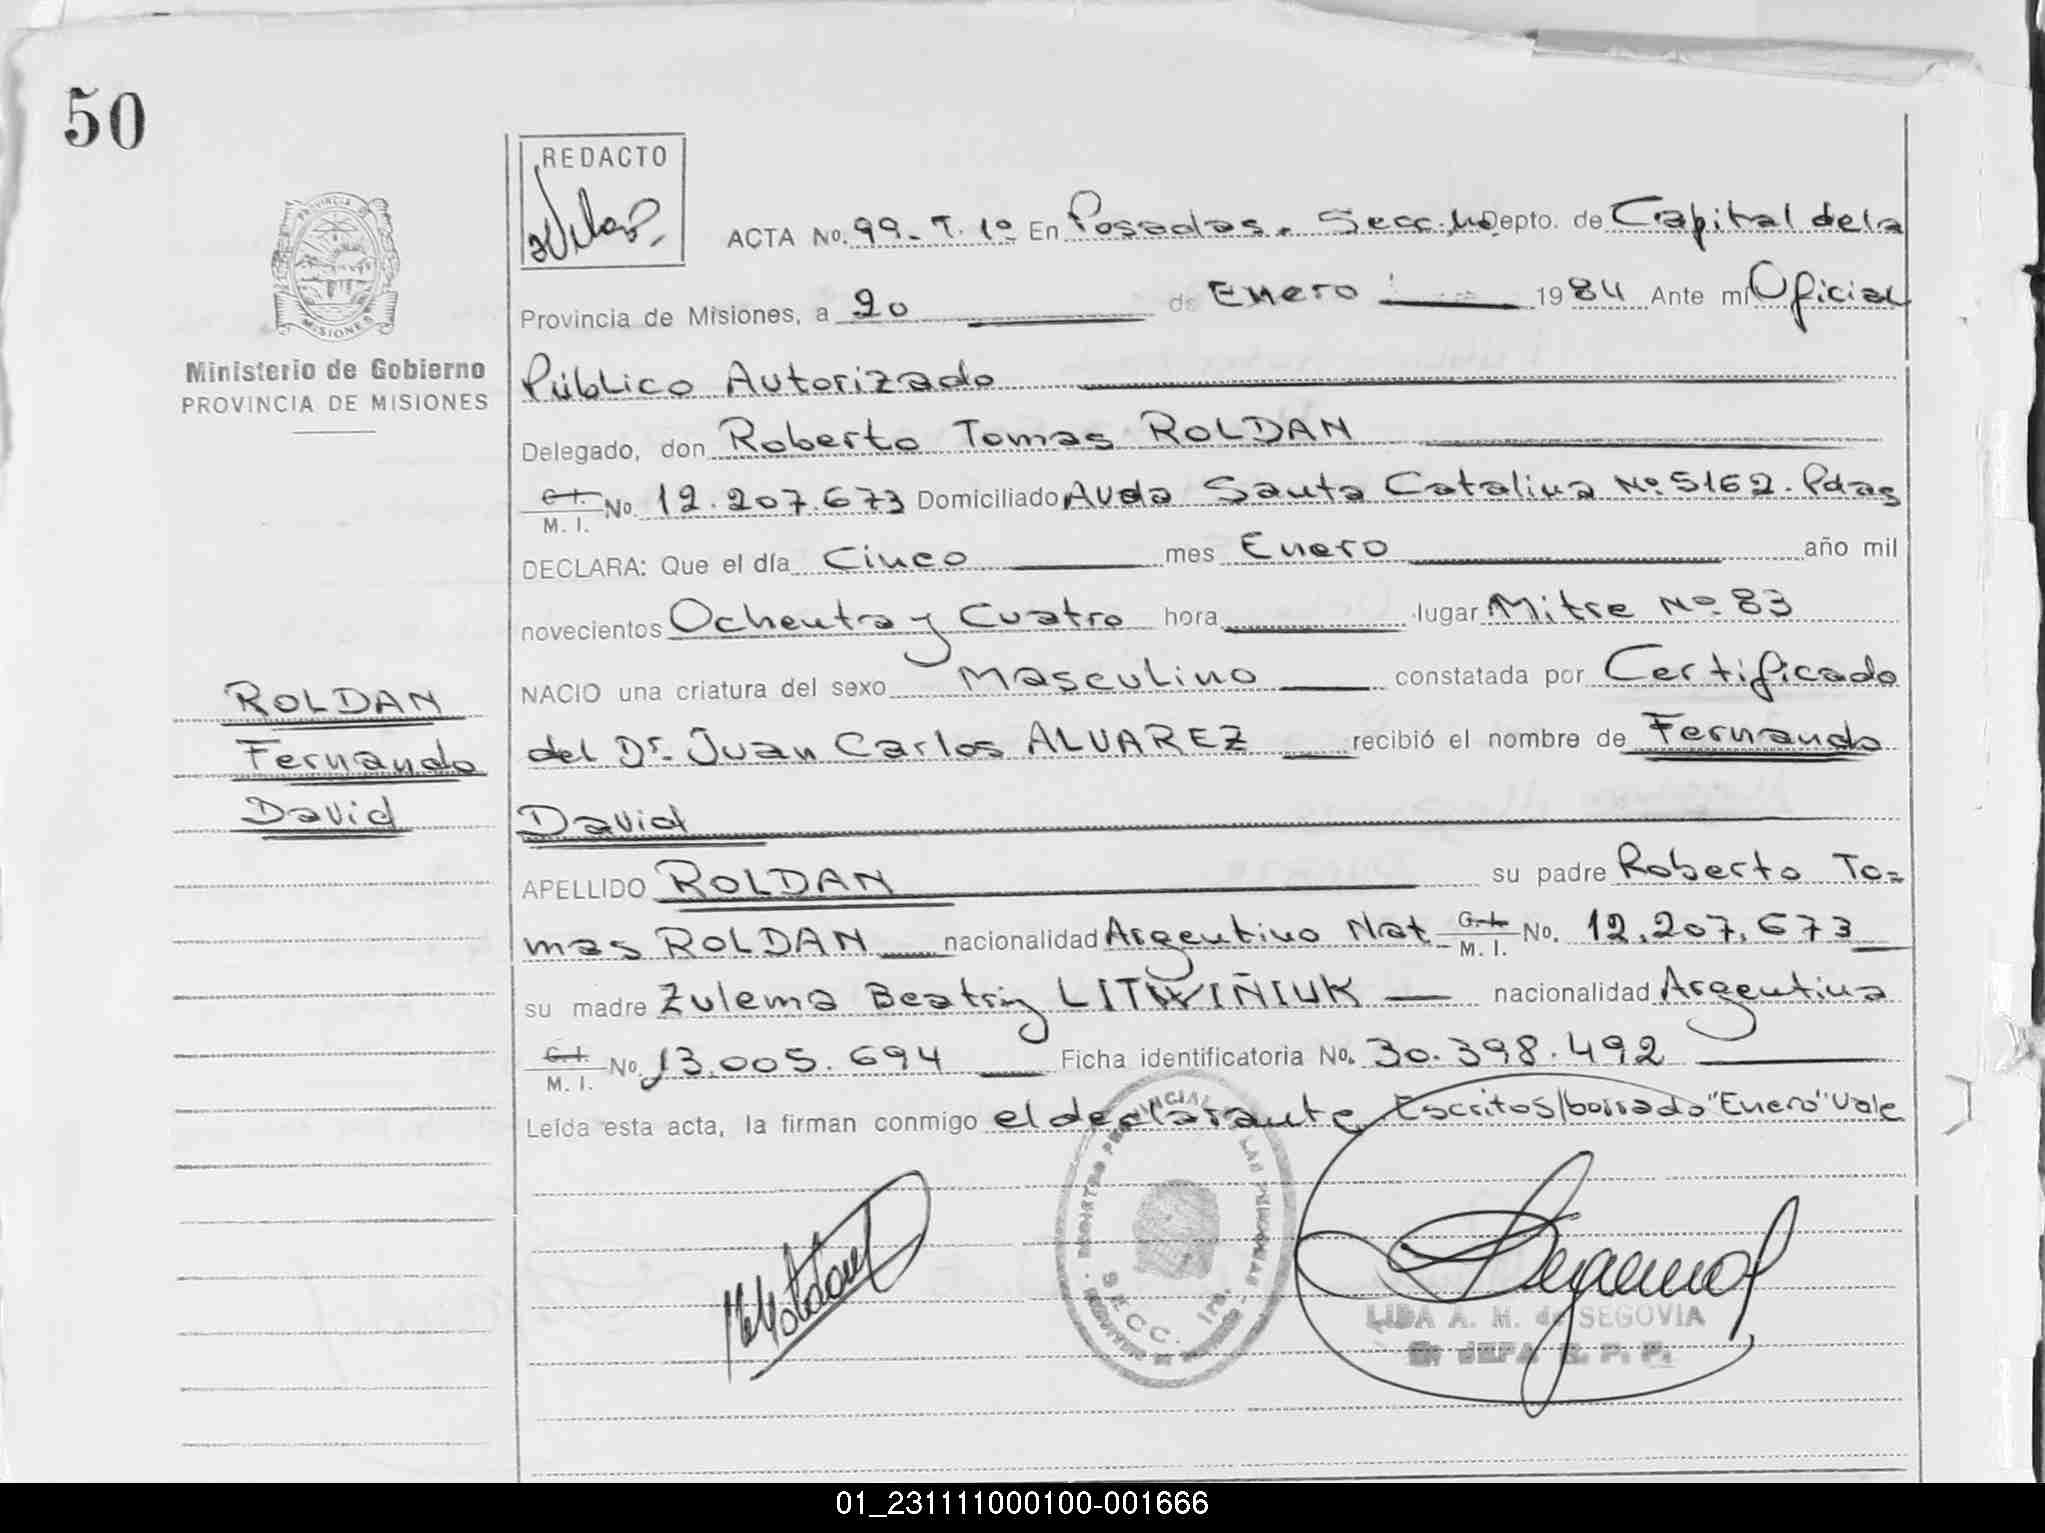 50
REDACTO
PROVINCIA DE
MISIONES
Ministerio de Gobierno
PROVINCIA DE MISIONES
ACTA No. 99. T. 1º En Posadas. Secc. Depto. de Capital de la
Provincia de Misiones, a 20 de Enero 1984 Ante mí Oficial
Público Autorizado
Delegado, don Roberto Tomas ROLDAN
C. I. M. I. No. 12.207.673 Domiciliado Avda Santa Catalina Nº 5162. Pdas
DECLARA: Que el día Cinco mes Enero año mil
novecientos Ochenta y Cuatro hora lugar Mitre Nº 83
NACIO una criatura del sexo Masculino constatada por Certificado
del Dr. Juan Carlos ALVAREZ recibió el nombre de Fernando
David
APELLIDO ROLDAN su padre Roberto To=
mas ROLDAN nacionalidad Argentino Nat C. I. M. I. No. 12.207.673
su madre Zulema Beatriz LITWIÑIUK nacionalidad Argentina
C. I. M. I. No. 13.005.694 Ficha identificatoria No. 30.398.492
Leída esta acta, la firman conmigo el declarante Escritos/borrado "Enero" Vale
ROLDAN
Fernando
David
SECC. 1ra.
LIDA A. M. de SEGOVIA
JEFA R. P. P.
01_231111000100-001666